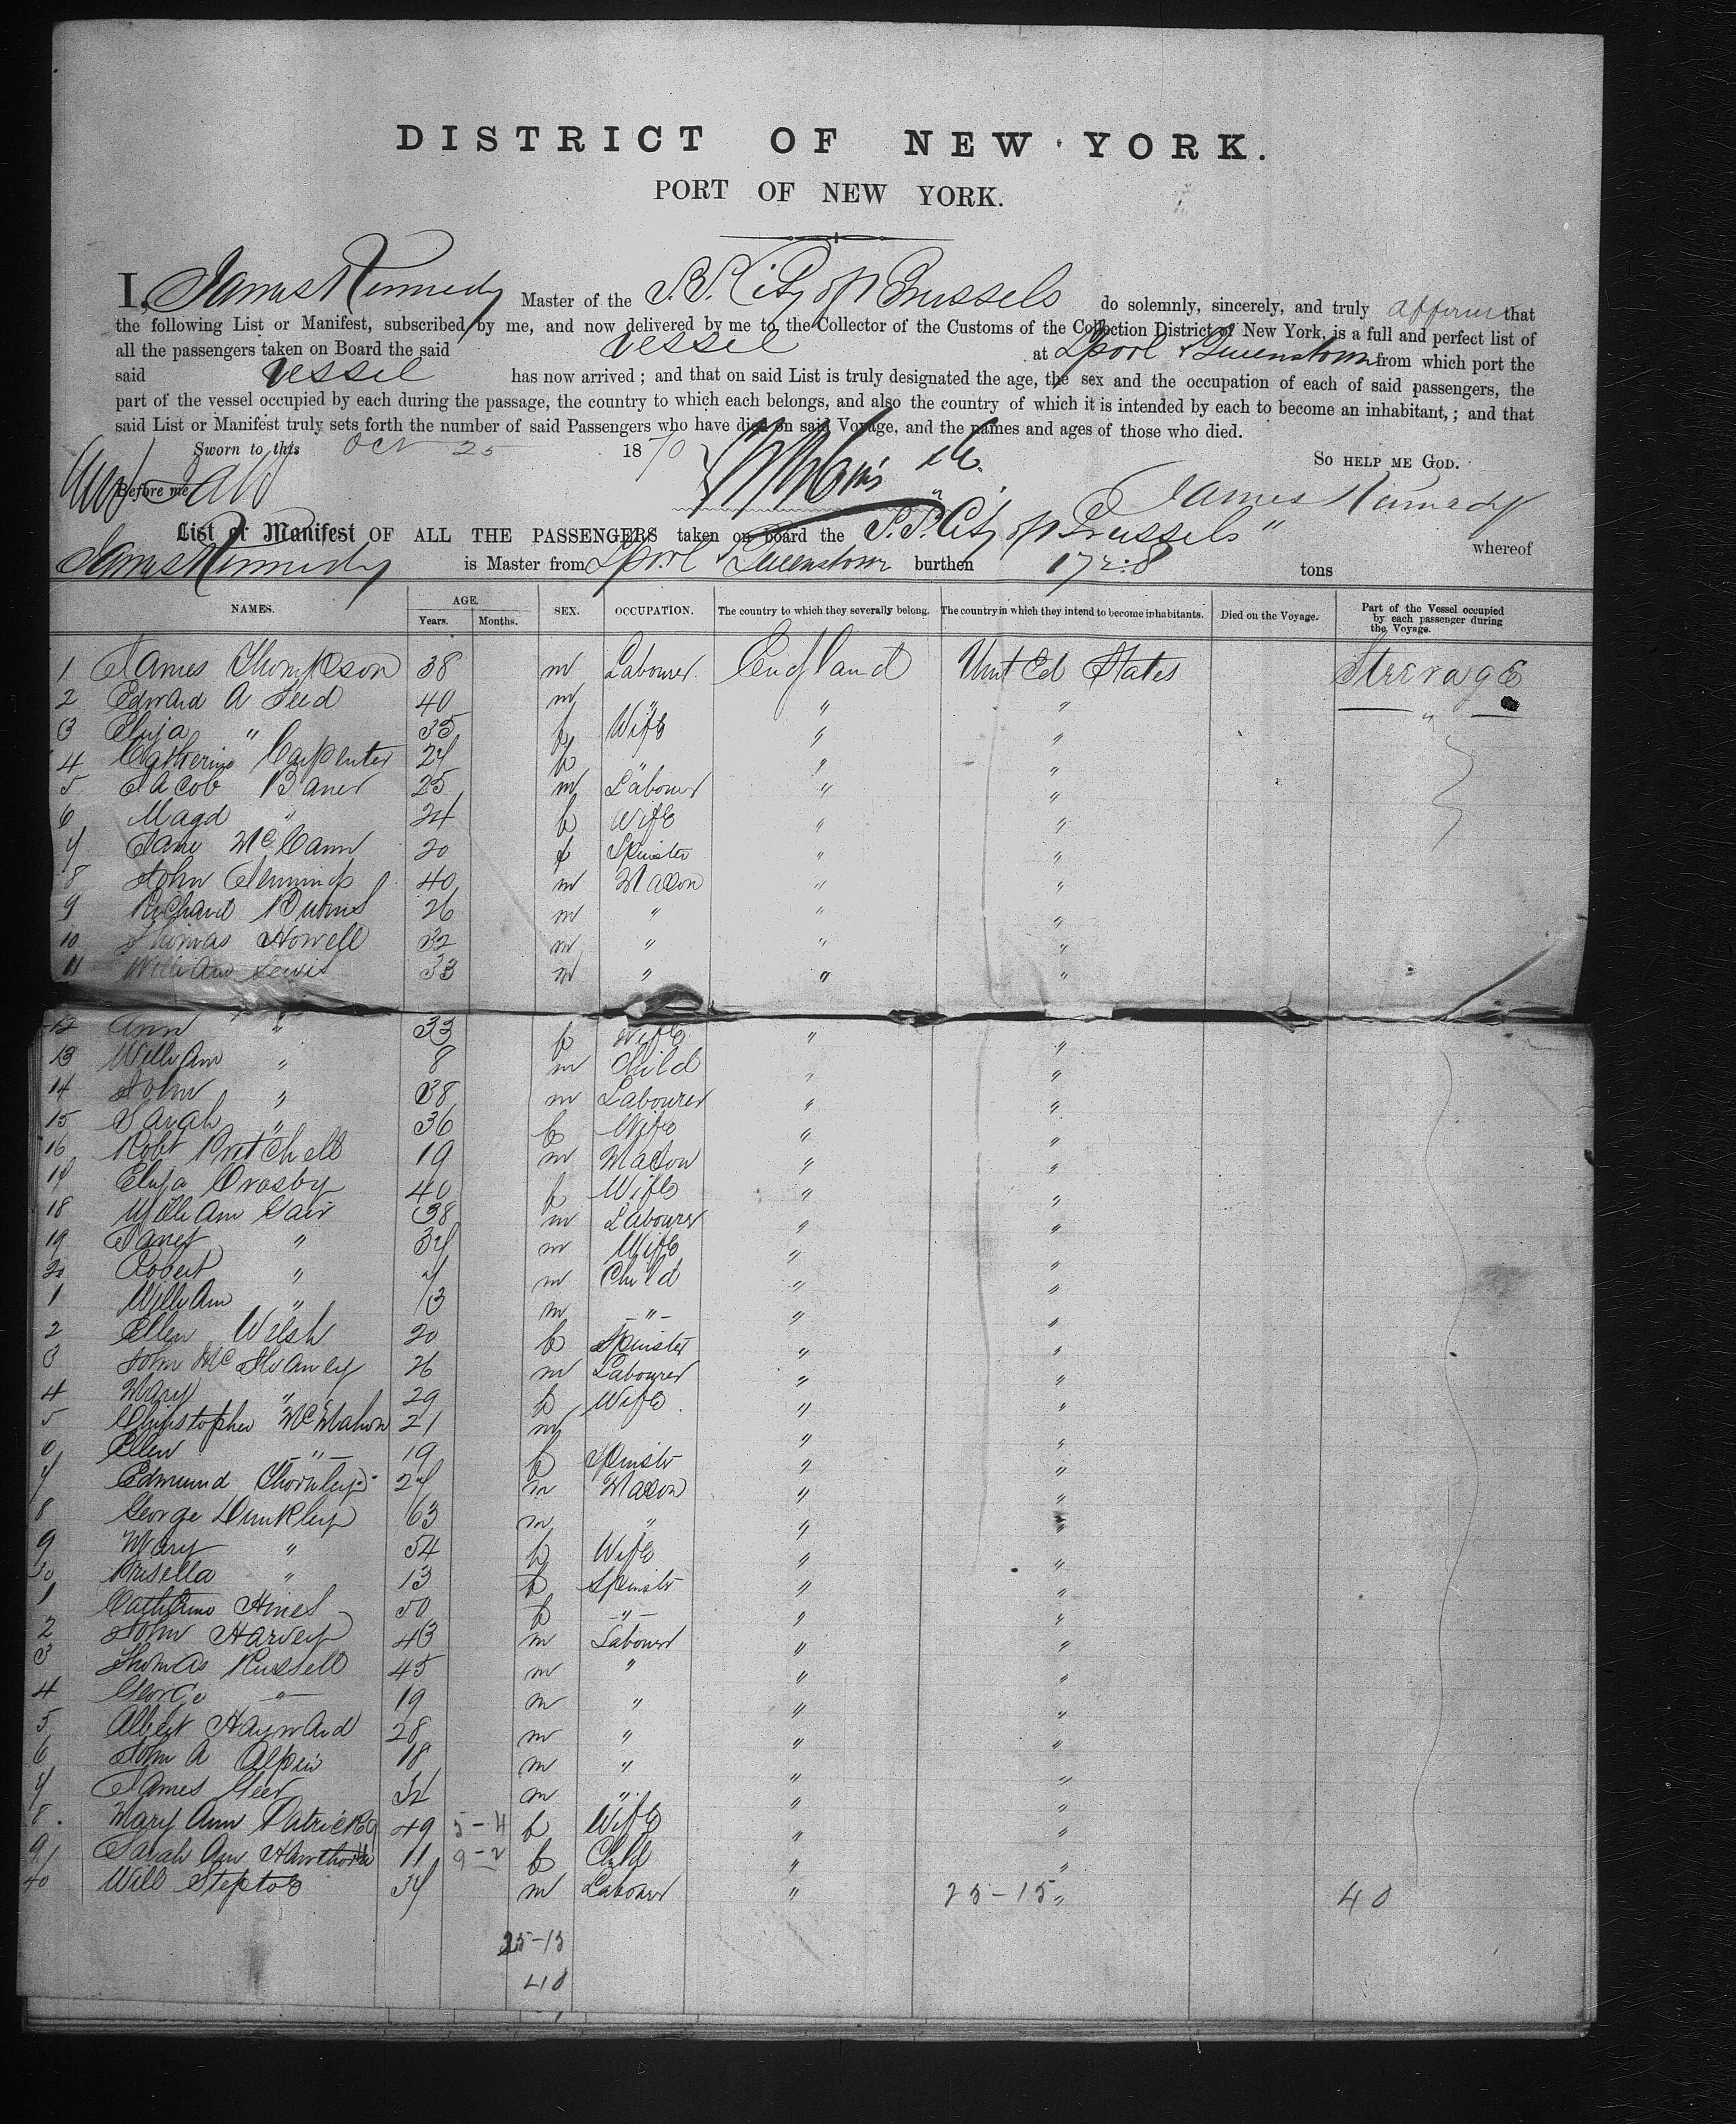 DISTRICT OF NEW YORK.
PORT OF NEW YORK.
I, James Kennedy Master of the S.S. City of Brussels do solemnly, sincerely, and truly affirm that
the following List or Manifest, subscribed by me, and now delivered by me to the Collector of the Customs of the Collection District of New York, is a full and perfect list of
all the passengers taken on Board the said Vessel at Lpool & Queenstown from which port the
said Vessel has now arrived; and that on said List is truly designated the age, the sex and the occupation of each of said passengers, the
part of the vessel occupied by each during the passage, the country to which each belongs, and also the country of which it is intended by each to become an inhabitant,; and that
said List or Manifest truly sets forth the number of said Passengers who have died on said Voyage, and the names and ages of those who died.
Sworn to this Oct 25 1870 SO HELP ME GOD.
Before me James Kennedy
List or Manifest OF ALL THE PASSENGERS taken on board the "S.S. City of Brussels" whereof
James Kennedy is Master from Lpool & Queenstown burthen tons
NAMES. AGE. Years. Months. SEX. OCCUPATION. The country to which they severally belong. The country in which they intend to become inhabitants. Died on the Voyage. Part of the Vessel occupied by each passenger during the Voyage.
1 James Thompson 38 m Labourer England United States Steerage
2 Edward A 40 m " " " "
3 Eliza " 35 f Wife " "
4 Catherine Carpenter 27 f " " "
5 Jacob Baner 25 m Labourer " "
6 Magd " 24 f Wife " "
7 Jane McCann 20 f Spinster " "
8 John 40 m Mason " "
9 Richard Burns 26 m " " "
10 Thomas Howell 32 m " " "
11 William Lewis 33 m " " "
12 Ann " 33 f Wife " "
13 William " 8 m Child " "
14 John " 38 m Labourer " "
15 Sarah " 36 f Wife " "
16 Robt Pritchell 19 m Mason " "
17 Eliza Crosby 40 f Wife " "
18 William Gair 38 m Labourer " "
19 Janet " 37 m Wife " "
20 Robert " 7 m Child " "
1 William " m -"- " "
2 Ellen Welsh 20 f Spinster " "
3 John 26 m Labourer " "
4 Mary " 29 f Wife " "
5 Christopher McMahon 21 m " "
6 Ellen -"- 19 f Spinster " "
7 Edmund Thornley 27 m Mason " "
8 George Dunkley 63 m " " "
9 Mary " 54 f Wife " "
30 Prisella " 13 f Spinster " "
1 Catherine Hines 50 f -"- " "
2 John Harvey 43 m Labourer " "
3 Thomas Russell 45 m " " "
4 George -"- 19 m " " "
5 Albert Hayward 28 m " " "
6 John A Alpin 18 m " " "
7 James Geer m " " "
8 Mary Ann Patrick 49 5-4 f Wife " "
9 Sarah Ann Hawthorn 11 9-2 f Child " "
40 Will Steptoe 37 m Labourer " 25-15 " 40
25-15
40